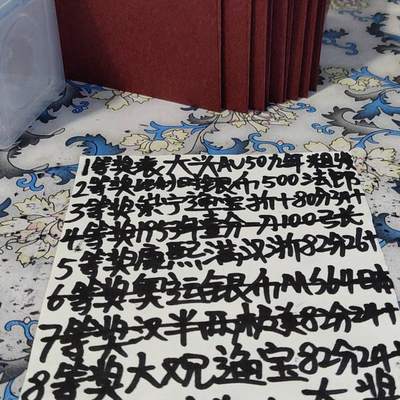 1等奖袁大头AU50九年粗发
2等奖银币500法郎
3等奖崇宁通宝折十80分34+
4等奖1953年壹分一刀100号长
5等奖康熙满汉浙82分26+
6等奖奥运银币MS64日本
7等奖汉半两极美82分24+
8等奖大观通宝82分24+
大奖